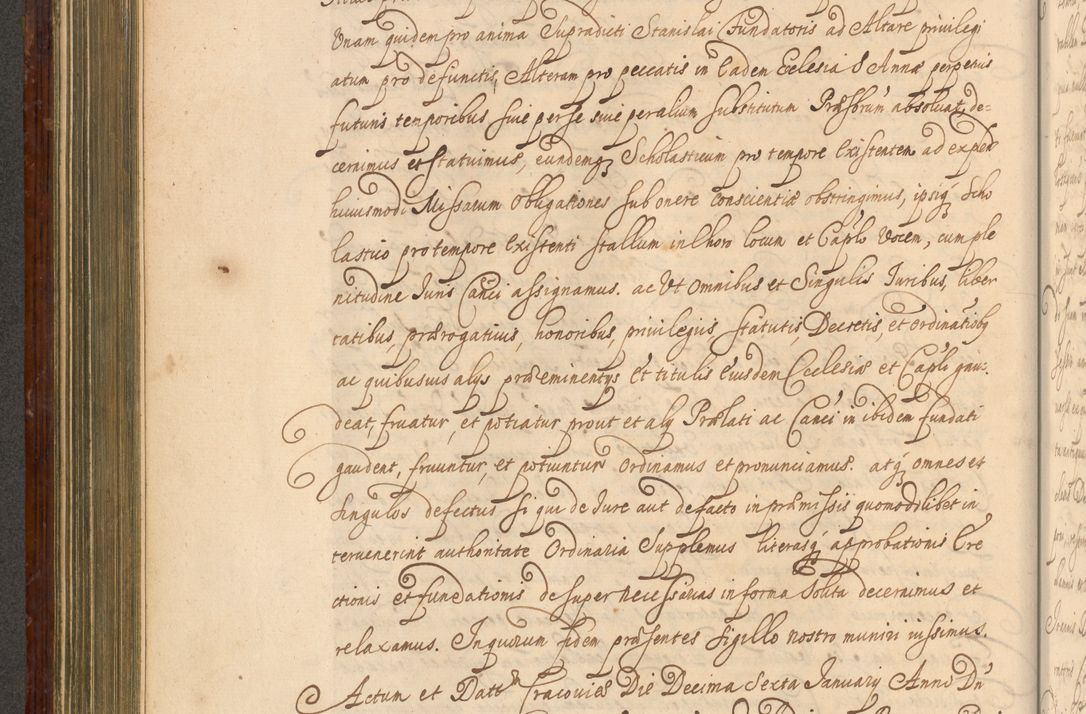 Unam quidem pro anima Supradicti Stanislai Fundatoris ad Altare privilegi
atum pro defunctis, Alteram pro peccatis in Eadem Ecclesia S Annæ perpetuis
futuris temporibus siue per se siue per alium substitutum Præsbrum absoluat, de=
cernimus et statuimus, eundemq Scholasticum pro tempore Existentem ad explen
huiusmodi Missarum obligationes sub onere conscientiæ obstringimus, ipsiq Scho
lastico pro tempore Existenti stallum in Choro locum et Caplo Vocem, cum ple
nitudine Iuris Canci assignamus. ac Vt omnibus et Singulis Iuribus, liber
tatibus, prærogatiuis, honoribus, priuilegijs, statutis, Decretis, et ordinatiobq
ac quibusuis alijs præeminentijs Et titulis Eiusdem Ecclesiæ et Capli gau=
deat, fruatur, et potiatur prout et alij Prælati ac Canci in ibidem fundati
gaudent, fruuntur, et potiuntur ordinamus et pronunciamus. atq omnes et
singulos defectus si qui de Iure aut de facto in præmissis quomodolibet in
teruenerint authoritate Ordinaria Supplemus literasq approbationis Ere
ctionis et fundationis desuper necessarias in forma Solita decernimus et
relaxamus. In quorum fidem præsentes sigillo nostro muniri iussimus.
Actum et Datt Cracouiæ Die Decima Sexta Ianuarij Anno Dn